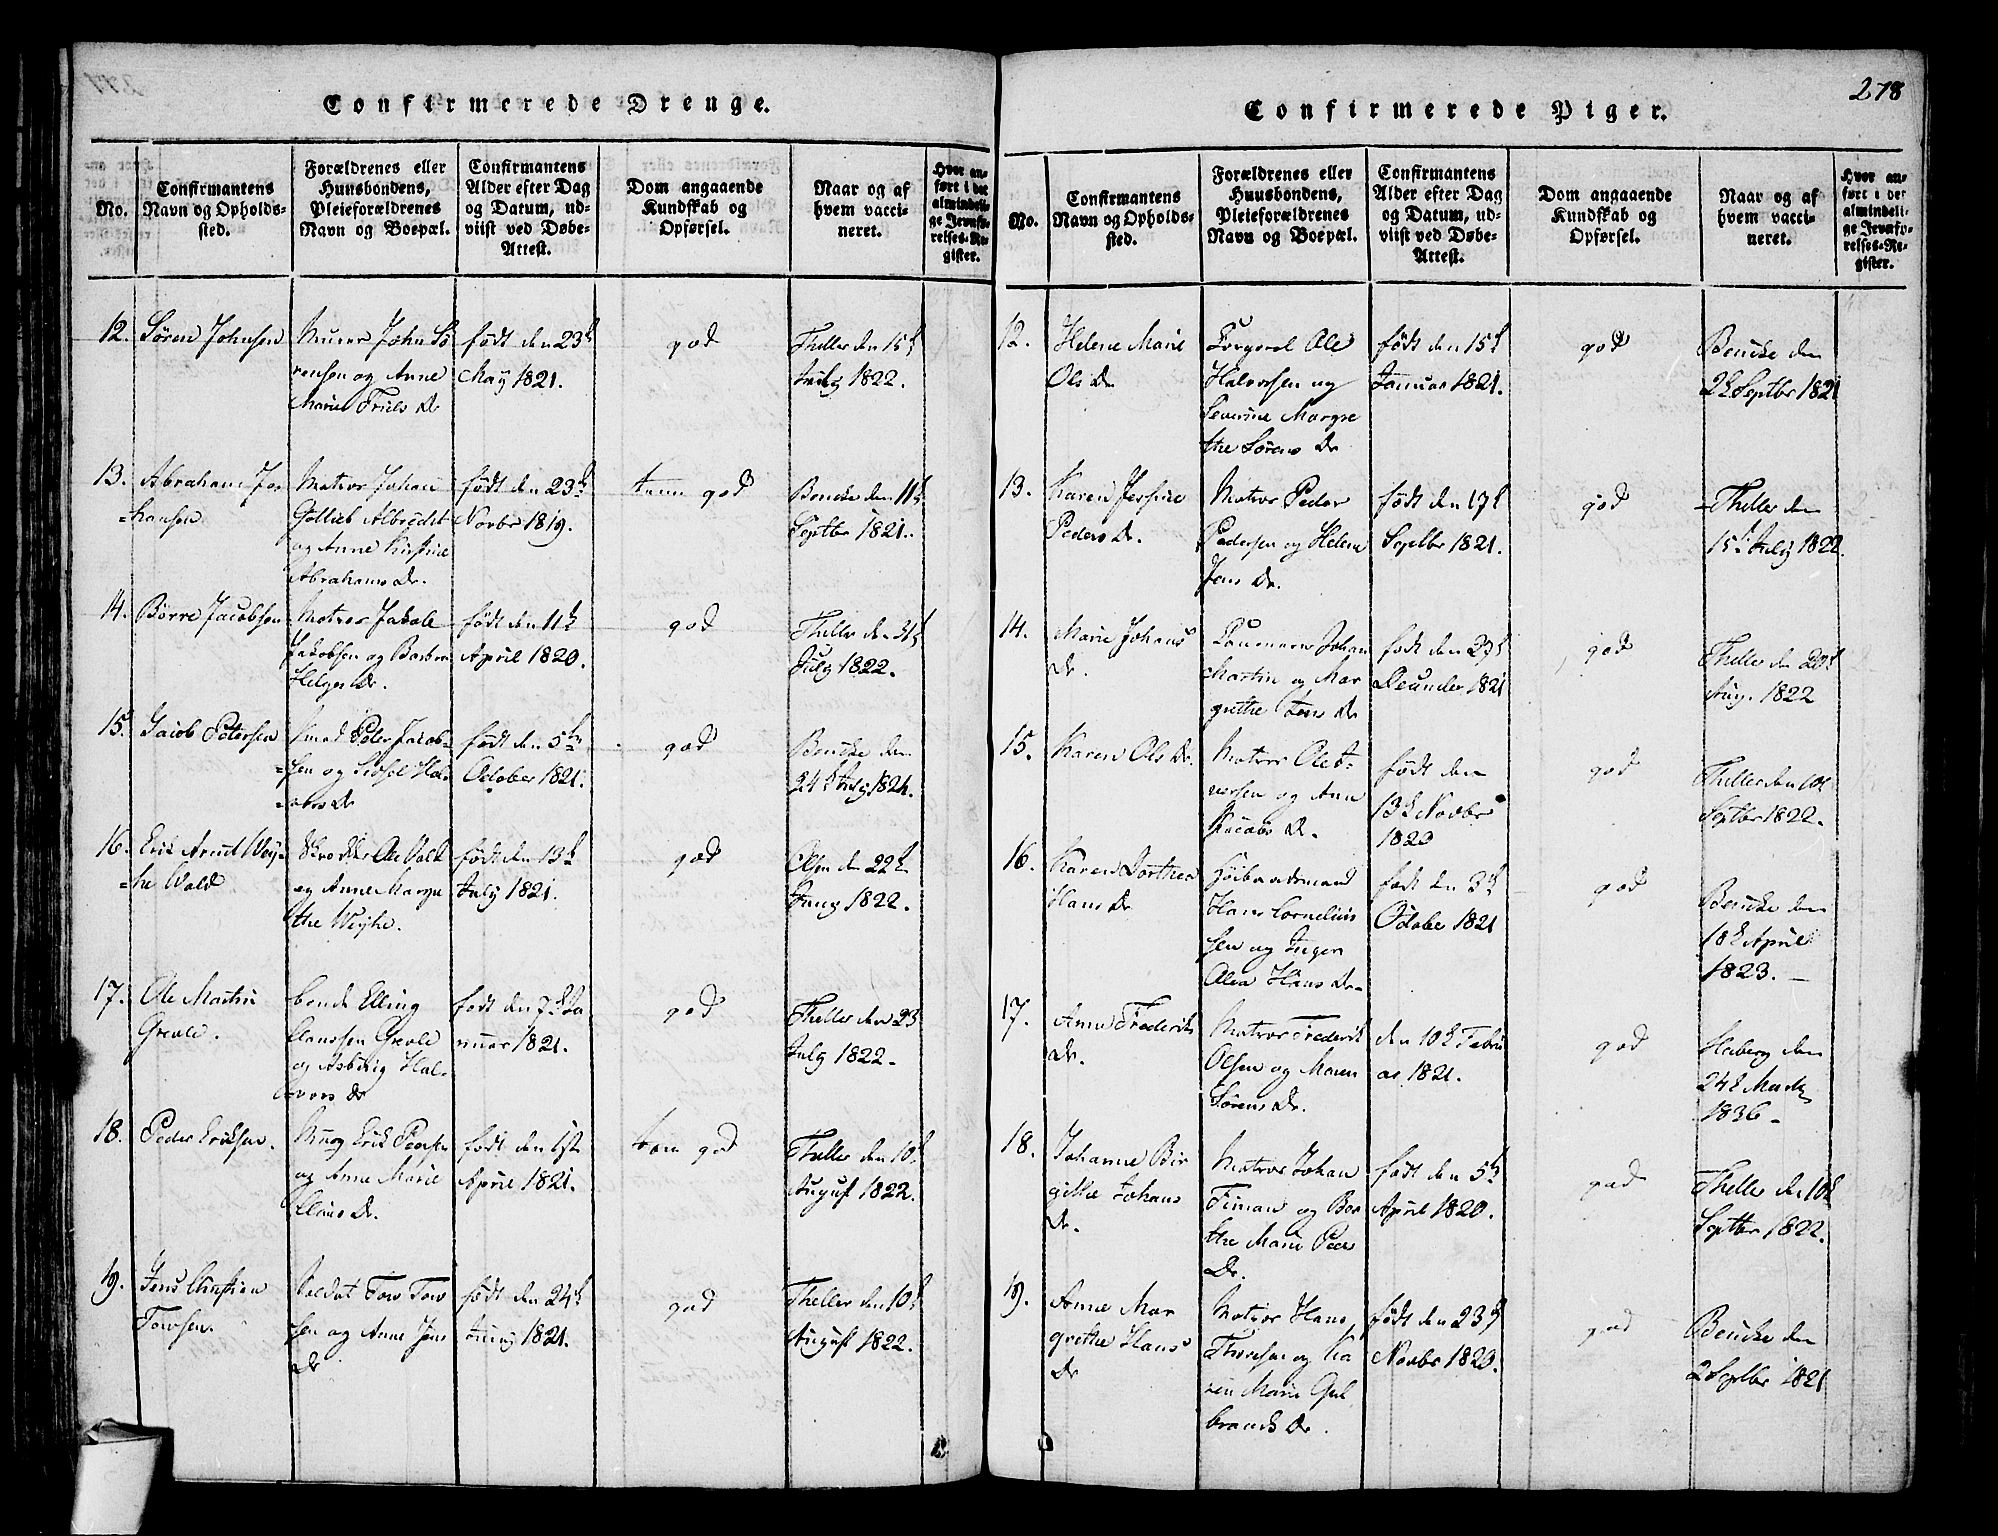 Confirmerede Drenge.
No.
Confirmantens
Navn og Opholds-
sted.
Forældrenes eller
Huusbondens,
Pleieforældrenes
Navn og Boepæl.
Confirmantens
Alder efter Dag
og Datum, ud-
viist ved Døbe-
Attest.
Dom angaaende
Kundskab og
Opførsel.
Naar og af
hvem vacci-
neret.
Hvor an-
ført i det
almindeli-
ge Jevnfø-
relses-Re-
gister.
12. Søren Johnsen
Murer John Sø
rensen og Anne
Marie Friels Dr
født den 23de
May 1821.
god
Theller den 15de
July 1822.
13. Abraham Jo
=hansen
Matros Johan
Gottlieb Albrecht
og Anne Kirstine
Abrahams Dr.
født den 23de
Novbr 1819.
tem god
Beucke den 11te
Septbr 1821.
14. Børre Jacobsen
Matros Jakob
Jakobsen og Barbra
Helges Dr.
født den 11te
April 1820.
god
Theller den 31te
July 1822.
15. Jacob Petersen
Smed Peder Jacob-
=sen og Sidsel Hal
=vors Dr
født den 5te
October 1821.
god
Beucke den
24de July 1821.
16. Erik Arnt Wey-
=he Wold
Ole Wold
og Anne Margre
the Weyhe.
født den 13de
July 1821.
god
Olsen den 22de
Juny 1822.
17. Ole Martin
Grevle.
bonde Elling
Clausen Grevle
og Asbiørg Hal-
vors Dr
født den 7de Ja
nuar 1821.
god
Theller den 23
July 1822.
18. Peder Eriksen.
Erik Peersen
og Anne Marie
Claus Dr.
født den 1ste
April 1821.
tem god
Theller den 10de
August 1822.
19. Jens Christian
Towsen.
Soldat Tow Tow
sen og Anne Jens
Dr
født den 24de
Juny 1821.
god
Theller den 10de
August 1822.
278
Confirmerede Piger.
No.
Confirmantens
Navn og Opholds-
sted.
Forældrenes eller
Huusbondens,
Pleieforældrenes
Navn og Boepæl.
Confirmantens
Alder efter Dag
og Datum, ud-
viist ved Døbe-
Attest.
Dom angaaende
Kundskab og
Opførsel.
Naar og af
hvem vacci-
neret.
Hvor an-
ført i det
almindeli-
ge Jevnfø-
relses-Re-
gister.
12. Helene Marie
Ols Dr
Ole
Halvorsen og
Severine Margre
the Sørens Dr
født den 15de
Januar 1821.
god
Beucke den
2de Septbr 1821
13. Karen Jensine
Peders Dr.
Matros Peder
Pedersen og Helene
Jens Dr.
født den 17de
Septbr 1821.
god
Theller den
15de July 1822.
14. Marie Johans
Dr.
Johan
Martin og Mar
grethe Jens Dr
født den 27de
December 1821
god
Theller den 20de
Aug. 1822
15. Karen Ols Dr.
Matros Ole I-
versen og Anne
Jacobs Dr.
født den
13de Novbr
1820
god
Theller den 10de
Septbr 1822.
16. Karen Dorthea
Hans Dr
Hans Cornelius
sen og Inger
Olea Hans Dr.
født den 3de
October 1821
god
Beucke den
18de April
1823.
17. Anne Frederiks
Dr.
Matros Frederik
Olsen og Maren
Sørens Dr.
den 10de Febru
ar 1821.
god
Heiberg den
24de Marts
1836
18. Johanne Bir
gitte Johans
Dr.
Matros Johan
Timan og Bor
the Marie Peers
Dr.
født den 5te
April 1820.
god
Theller den 10de
Septbr 1822.
19. Anne Mar
grethe Hans
Dr
Matros Hans
Thoresen og Ka
ren Marie Gul
brands Dr.
født den 23de
Novbr 1820.
god
Beucke den
2 Septbr 1821